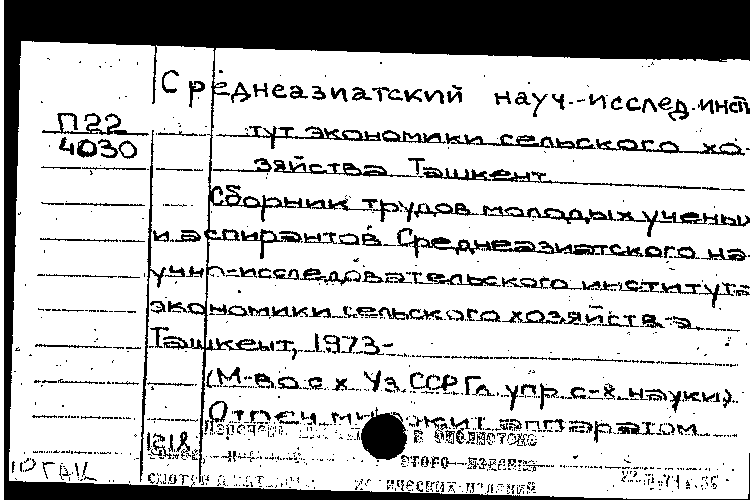 Среднеазиатский науч.-исслед.инсти
П22
тут экономики сельского хо-
4030
зяйства Ташкент
Сборник трудов молодых ученых
и аспирантов Среднеазиатского на-
учно-исследовательского института
экономики сельского хозяйства.
Ташкент, 1973-
(М-во с х Уз ССР Гл упр с-х науки).
Отпеч аппаратом
в библиотеке
этого издания
10 ГАК